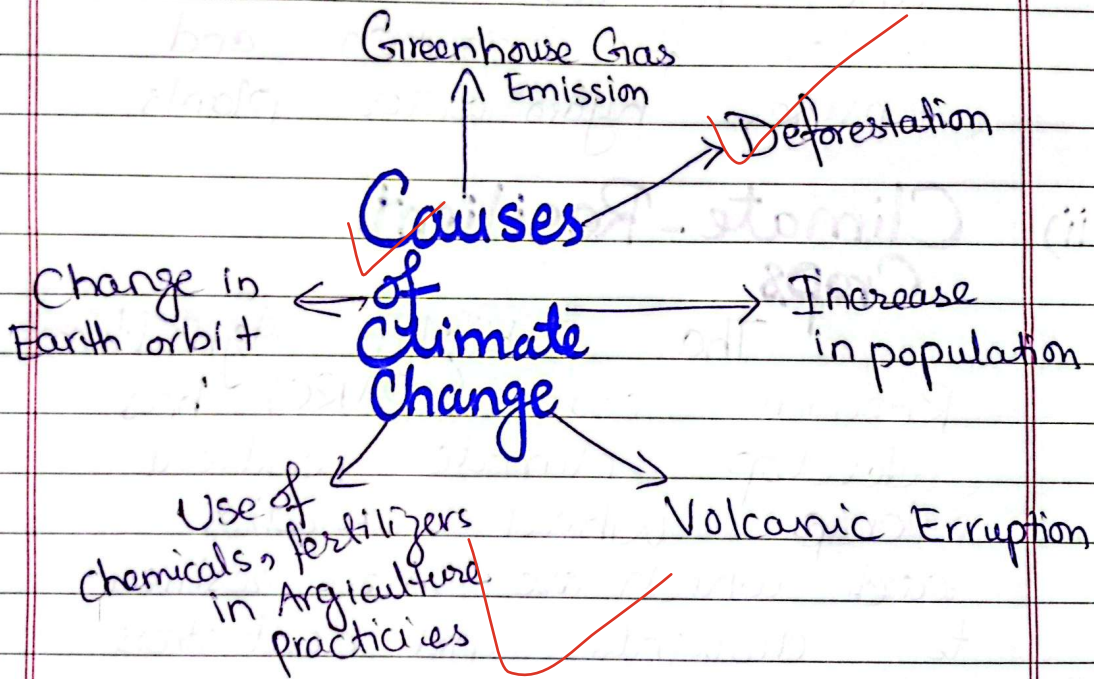 Greenhouse Gas
Emission
Deforestation
Causes
of
Climate
Change
Change in
Earth orbit
Increase
in population
Use of
chemicals, fertilizers
in Argiculture
practicies
Volcanic Erruption